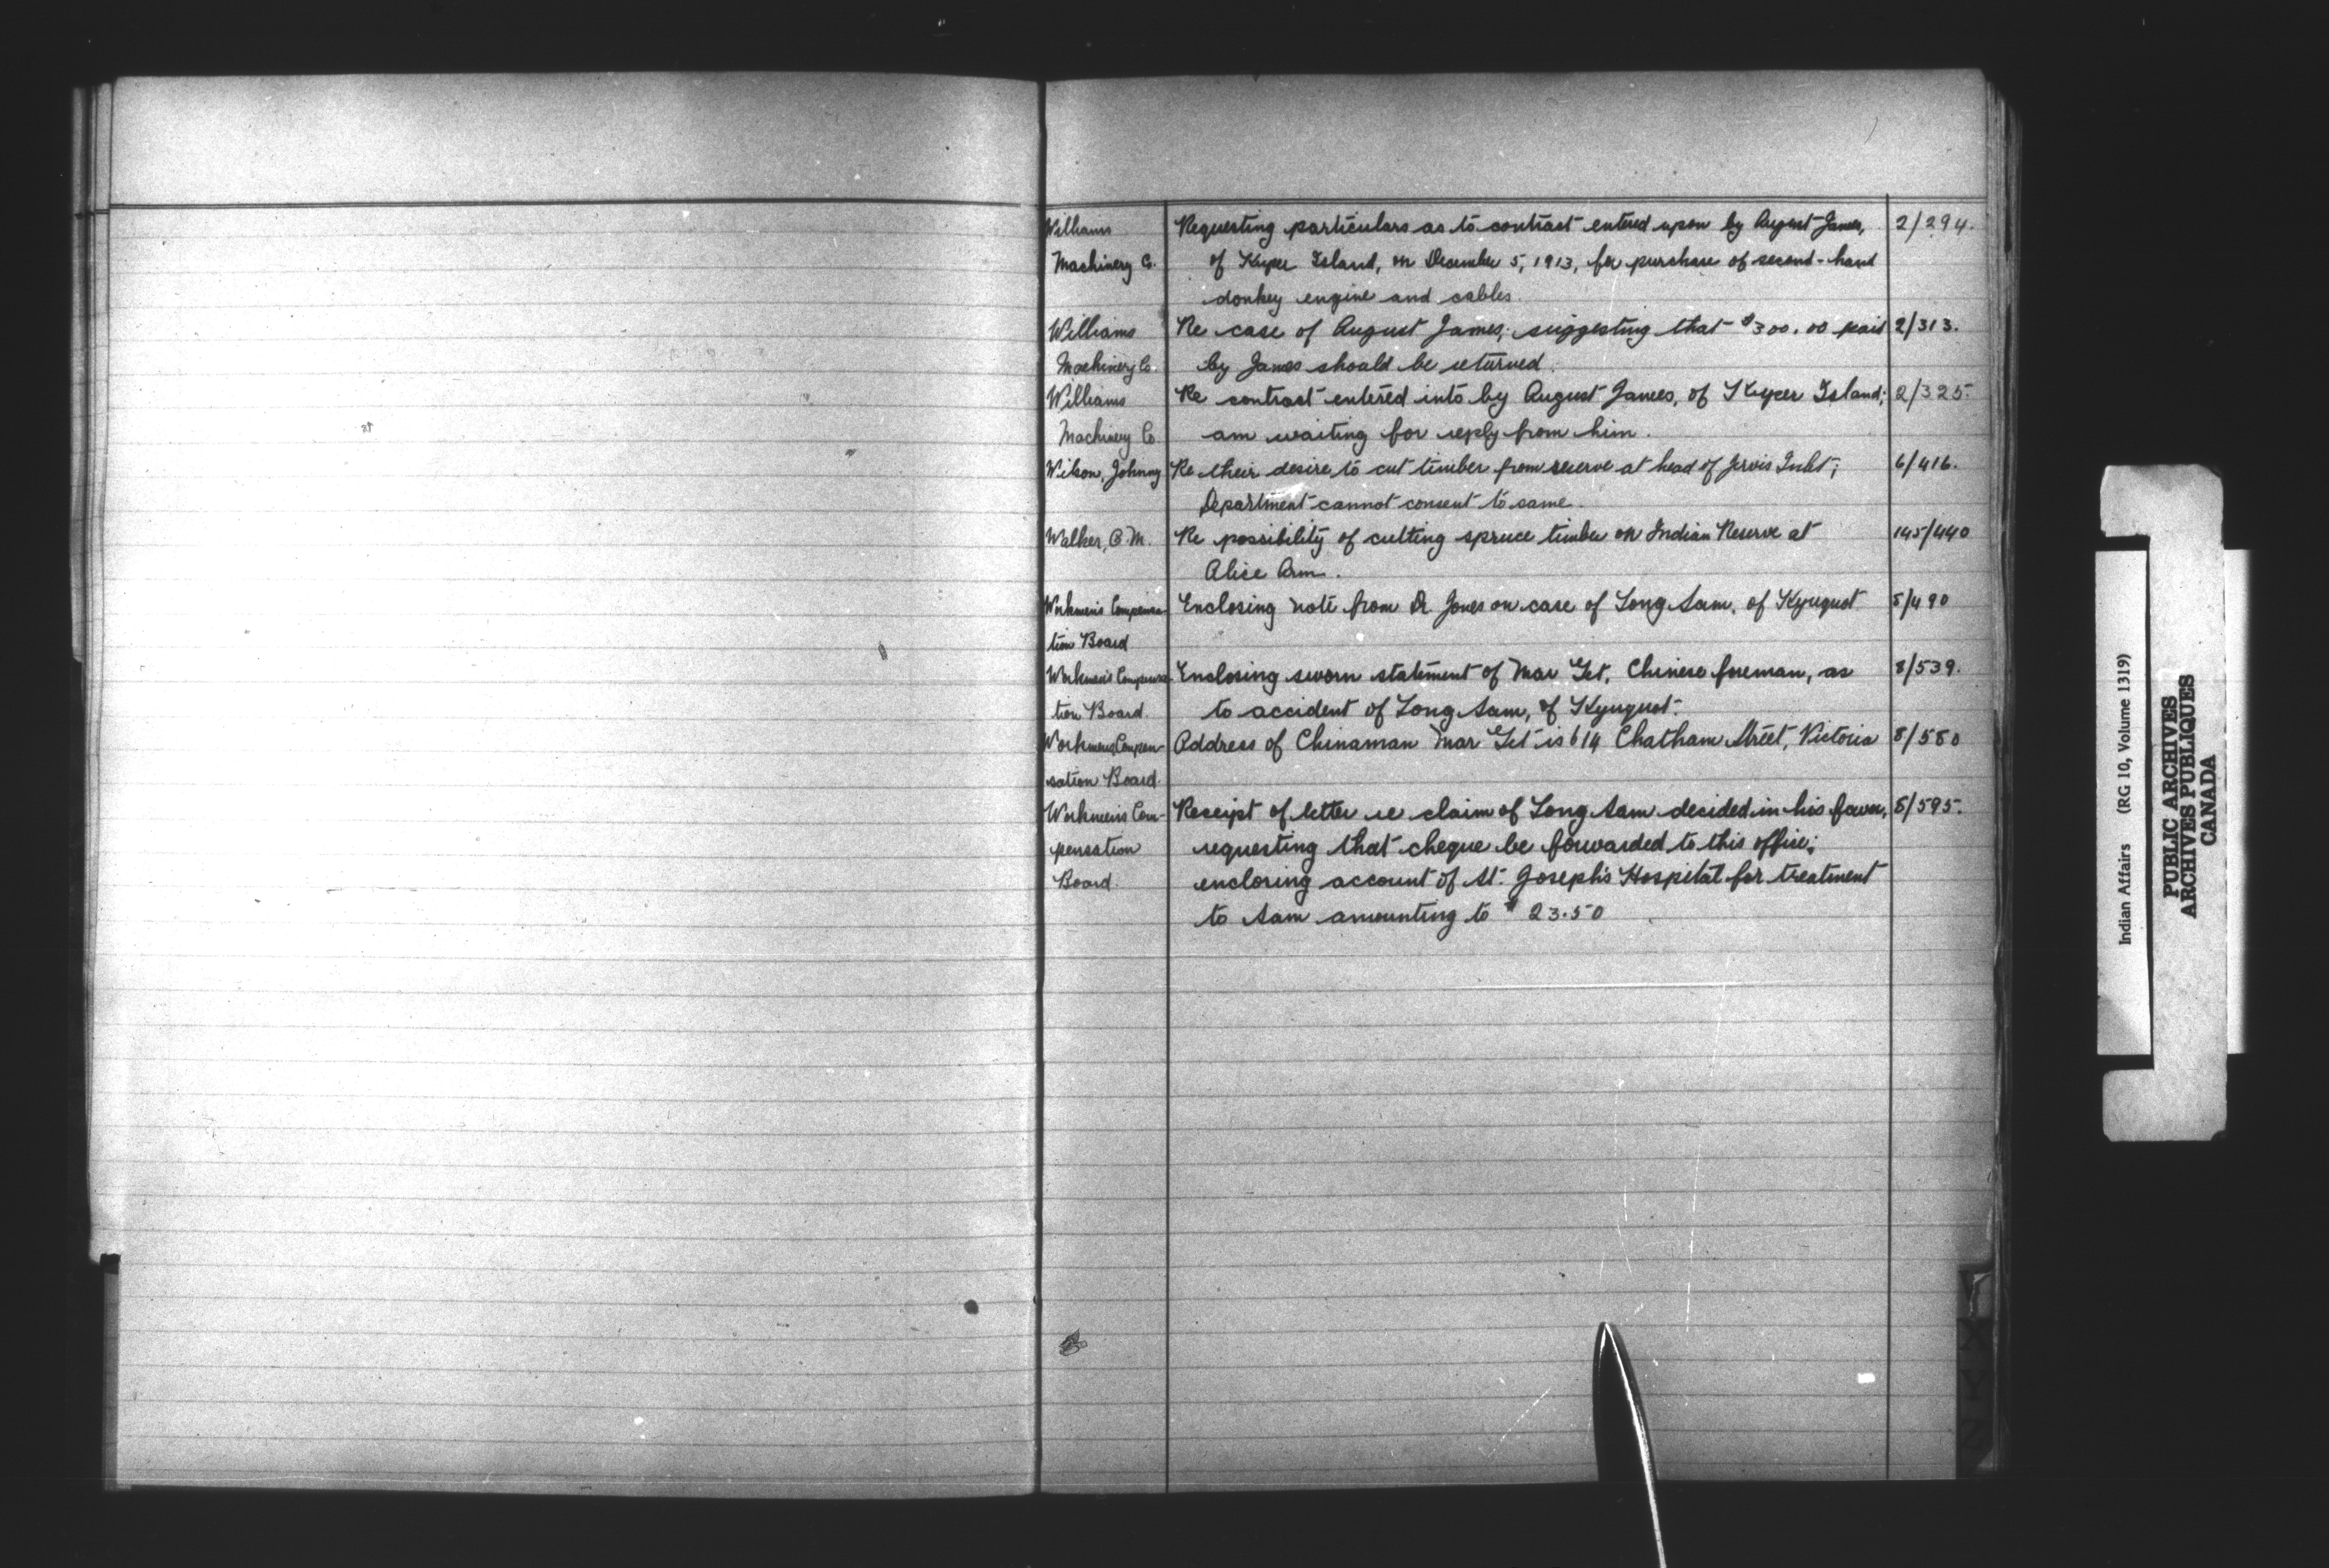 Williams Requesting particulars as to contract entered upon by August James, 2/294.
Machinery Co. of Kuper Island, on December 5, 1913, for purchase of second-hand
donkey engine and cables.
Williams Re case of August James; suggesting that $300.00 paid 2/313.
Machinery Co. by James should be returned.
Williams Re contract entered into by August James, of Kuper Island; 2/325.
Machinery Co. am waiting for reply from him.
Wilson, Johnny Re their desire to cut timber from reserve at head of Jervis Inlet; 6/416.
Department cannot consent to same.
Walker, C.M. Re possibility of cutting spruce timber on Indian Reserve at 145/440
Alice Arm.
Workmen's Compensa- Enclosing note from Dr. Jones on case of Long Sam, of Kyuquot 8/490
tion Board
Workmen's Compensa- Enclosing sworn statement of Mar Get, Chinese foreman, as 8/539.
tion Board. to accident of Long Sam, of Kyuquot.
Workmens Compen- Address of Chinaman Mar Get is 614 Chatham Street, Victoria 8/580
sation Board.
Workmen's Com- Receipt of letter re claim of Long Sam decided in his favor, 8/595.
pensation requesting that cheque be forwarded to this office;
Board. enclosing account of St. Joseph's Hospital for treatment
to Sam amounting to $23.50
X
Y
Z
Indian Affairs (RG 10, Volume 1319)
PUBLIC ARCHIVES
ARCHIVES PUBLIQUES
CANADA